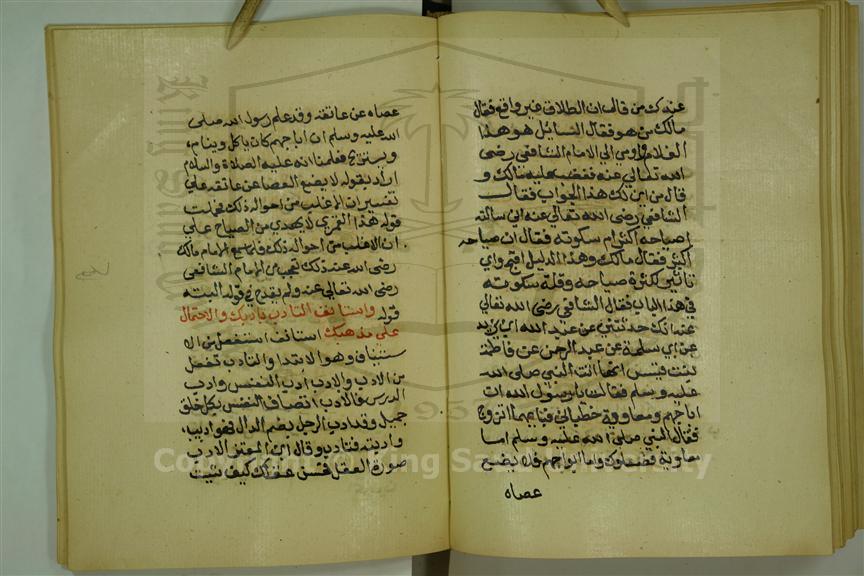 عنه كـ من قال ان الطلاق غير واقع فقال
مالك من هو فقال السائل هو هذا
الغلام واومى الى الامام الشافعي رضى
الله تعالى عنه فغضب عليه مالك و
قال من اين لك هذا الجواب فقال
الشافعي رضى الله تعالى عنه اني سالته
اصياحه اكثر ام سكوته فقال ان صياحه
اكثر فقال مالك وهذا الدليل اقبح واي
تاثير لكثرة صياحه وقلة سكوته
في هذا الباب فقال الشافعي رضى الله تعالى
عنه انك حدثتني عن عبد الله بن يزيد
عن ابي سلمة بن عبد الرحمن عن فاطمة
بنت قيس انها اتت النبي صلى الله
عليه وسلم فقالت يا رسول الله ان
ابا جهم ومعاوية خطباني فبايهما اتزوج
فقال النبي صلى الله عليه وسلم اما
معاوية فصعلوك واما ابو جهم فلا يضع
عصاه
عصاه عن عاتقه وقد علم رسول الله صلى
الله عليه وسلم ان ابا جهم كان ياكل وينام
ويستريح فعلمنا انه عليه الصلاة والسلام
اراد بقوله لا يضع العصا عن عاتقه على
تفسير ان الاغلب من احواله ذلك فحملت
قوله هذا القمري لا يهدى من الصياح على
ان الاغلب من احواله ذلك فلما سمع الامام مالك
رضى الله عنه ذلك تعجب من الامام الشافعي
رضى الله تعالى عنه ولم يقدح في قوله البتة
قوله واستانف التادب بادبك والاحتمال
على مذهبك استانف استفعل من الا
ستيناف وهو الابتدا والتادب تفعل
من الادب والادب ادب النفس وادب
الدرس فالادب اتصاف النفس بكل خلق
جميل وقد ادب الرجل بضم الدال فهو اديب
وادبته فتادب وقال ابن المعتز الادب
صورة العقل فحسن عقلك كيف شيت
Copyright © King Saud University
1957